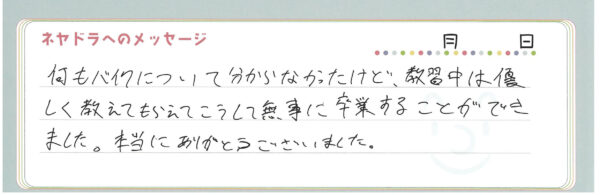 ネヤドラへのメッセージ
月 日
何もバイクについて分からなかったけど、教習中は優
しく教えてもらえてこうして無事に卒業することができ
ました。本当にありがとうございました。